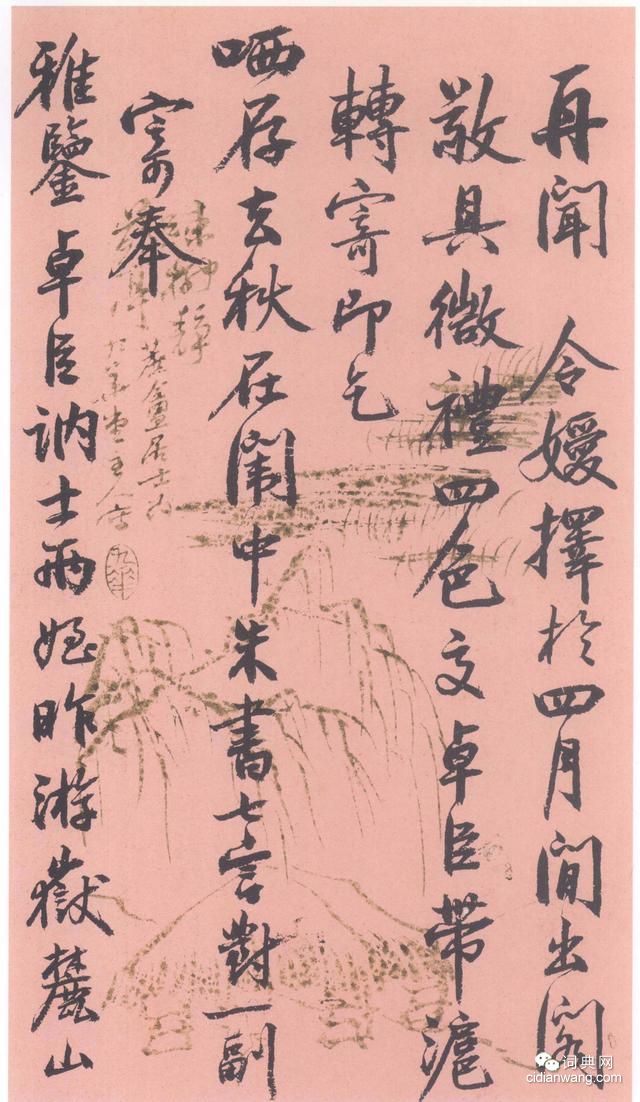 再聞 令嬡擇於四月間出閣
敬具微禮四色交卓臣帶滬
轉寄即乞
哂存去秋在闈中朱書七言對一副
寄奉
雅鑒卓臣訥士兩姪昨游嶽麓山
词典网
cidianwang.com